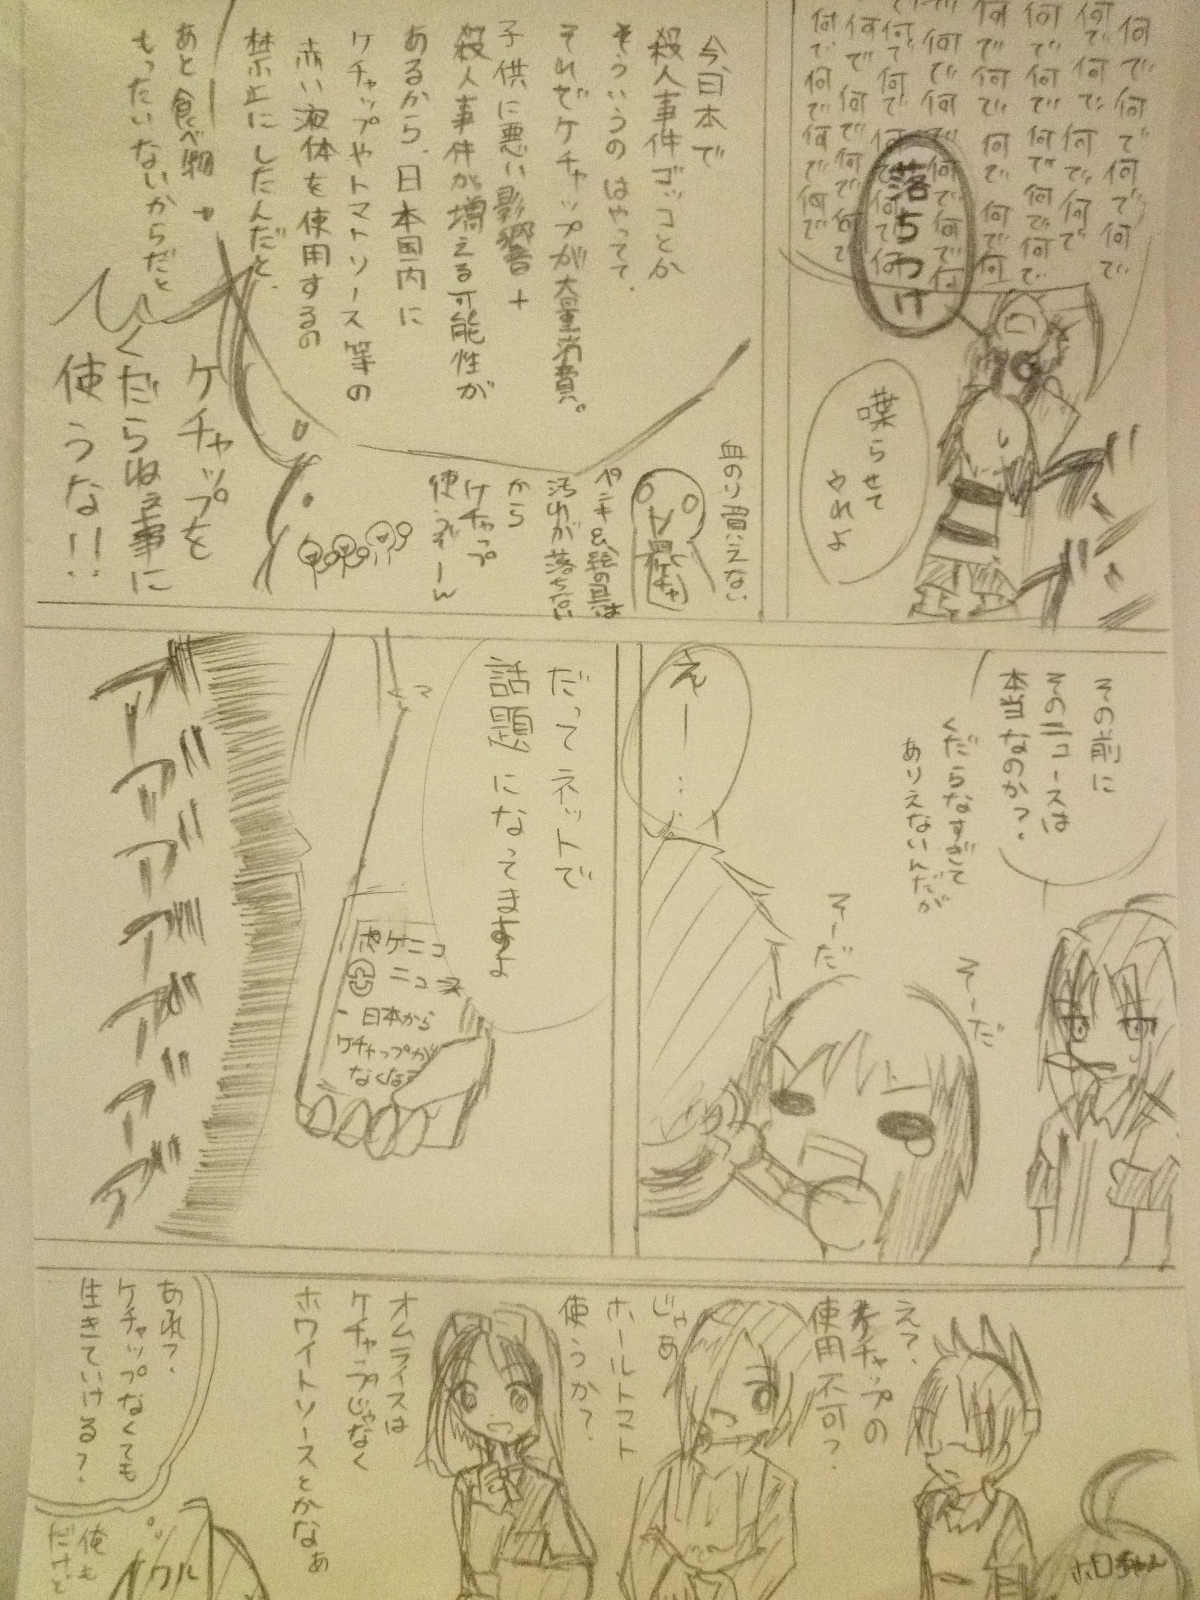 何で何で何で何で何で
何で何で何で何で何で
何で何で何で何で何で
何で何で何で何で何
何で何で何で何で何で
何で何で何で何で何で
何で何で何で何で
何で何で何で何で
落ちつけ
喋らせて
やれよ
今、日本で
殺人事件ゴッコとか
そういうのはやってて、
それでケチャップが大量消費。
子供に悪い影響+
殺人事件が増える可能性が
あるから、日本国内に
ケチャップやトマトソース等の
赤い液体を使用するの
禁止にしたんだと、
あと食べ物
もったいないからだと
血のり買えない
ペンキ&絵の具は
汚れが落ちない
から
ケチャップ
使うぞーん
ケチャップを
くだらねぇ事に
使うな!!
その前に
そのニュースは
本当なのか?
くだらなすぎて
ありえないんだが
そーだ
そーだ
えー…
だってネットで
話題になってますよ
ポケニコ
ニュース
日本から
ケチャップが
なくなる
ブブブブブブブ
え?、
ケチャップの
使用不可?
じゃあ
ホールトマト
使うか?
オムライスは
ケチャップじゃなく
ホワイトソースとかなぁ
あれ?、
ケチャップなくても
生きていける?
俺も
だけど
ホロちゃん